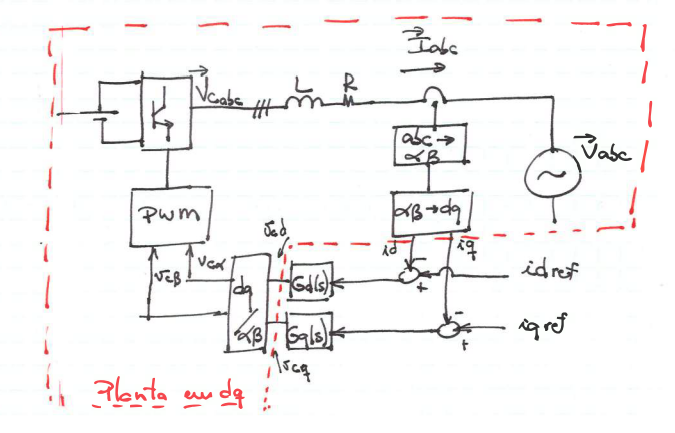 Iabc
Vcabc
L
R
abc→
αβ
Vabc
αβ→dq
PWM
vcd
id
iq
-
vcβ
vcα
dq
αβ
Gd(s)
+
idref
Gq(s)
-
+
iqref
vcq
Planta em dq